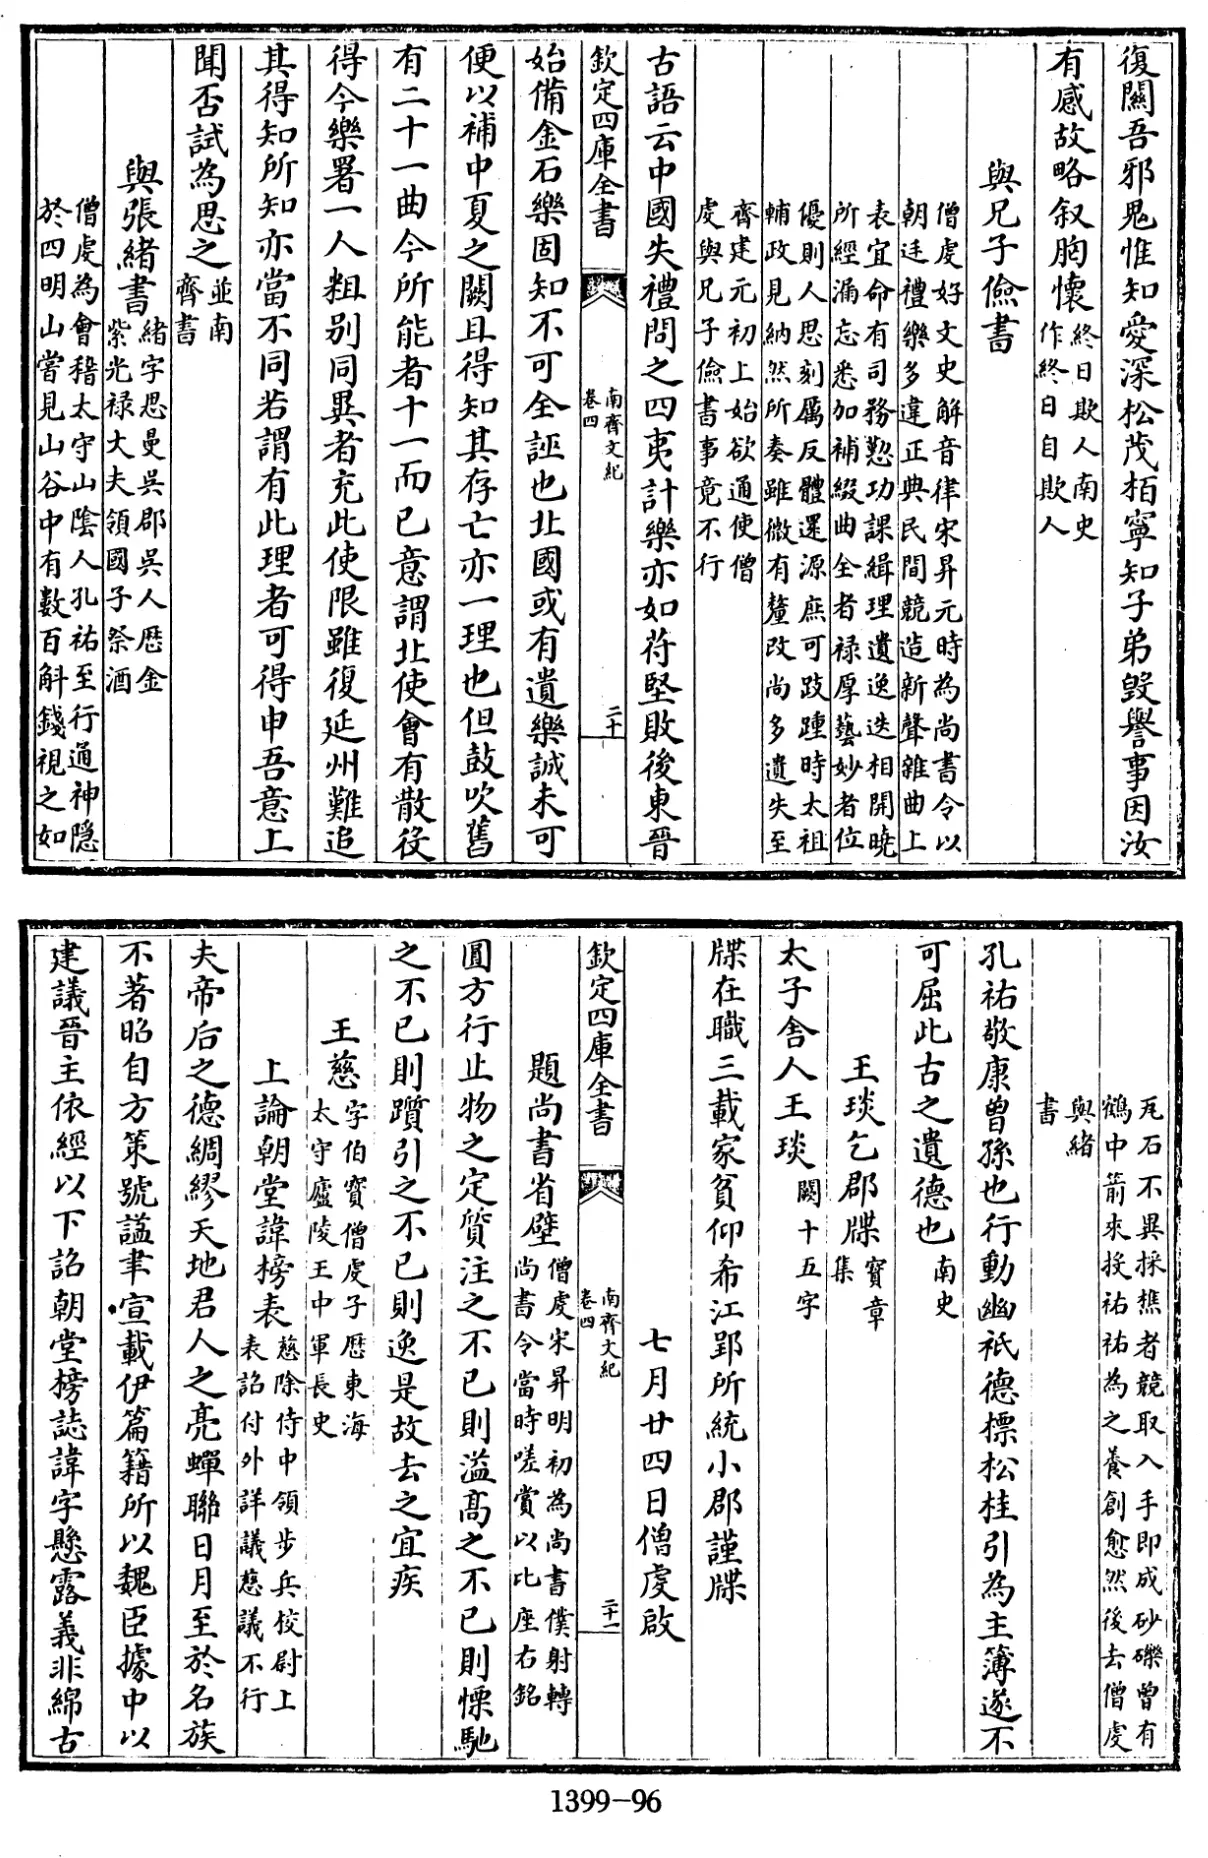 復關吾邪鬼惟知愛深松茂栢寧知子弟毀譽事因汝
有感故略叙胸懷終日欺人南史
作終日自欺人
與兄子儉書
僧虔好文史解音律宋昇元時為尚書令以
朝廷禮樂多違正典民間競造新聲雜曲上
表宜命有司務懃功課緝理遺逸迭相開曉
所經漏忘悉加補綴曲全者禄厚藝妙者位
優則人思刻厲反體還源庶可跂踵時太祖
輔政見納然所奏雖微有釐改尚多遺失至
齊建元初上始欲通使僧
虔與兄子儉書事竟不行
古語云中國失禮問之四夷計樂亦如苻堅敗後東晉
欽定四庫全書
南齊文紀
卷四
二十
始備金石樂固知不可全誣也北國或有遺樂誠未可
便以補中夏之闕且得知其存亡亦一理也但鼓吹舊
有二十一曲今所能者十一而已意謂北使會有散役
得今樂署一人粗别同異者充此使限雖復延州難追
其得知所知亦當不同若謂有此理者可得申吾意上
聞否試為思之並南
齊書
與張緒書緒字思曼吳郡吳人歴金
紫光禄大夫領國子祭酒
僧虔為會稽太守山隂人孔祐至行通神隱
於四明山嘗見山谷中有數百斛錢視之如
瓦石不異採樵者競取入手即成砂礫曾有
鶴中箭來投祐祐為之養創愈然後去僧虔
與緒
書
孔祐敬康曽孫也行動幽祇德標松桂引為主簿遂不
可屈此古之遺德也南史
王琰乞郡牒寳章
集
太子舍人王琰闕十五字
牒在職三載家貧仰希江郢所統小郡謹牒
七月廿四日僧虔啟
欽定四庫全書
南齊文紀
卷四
二十一
題尚書省壁僧虔宋昇明初為尚書僕射轉
尚書令當時嗟賞以比座右銘
圓方行止物之定質注之不已則溢高之不已則慄馳
之不已則躓引之不已則逸是故去之宜疾
王慈字伯寳僧虔子歴東海
太守廬陵王中軍長史
上論朝堂諱榜表慈除侍中領步兵校尉上
表詔付外詳議慈議不行
夫帝后之德綢繆天地君人之亮蟬聯日月至於名族
不著昭自方策號諡聿宣載伊篇籍所以魏臣據中以
建議晉主依經以下詔朝堂榜誌諱字懸露義非綿古
1399-96